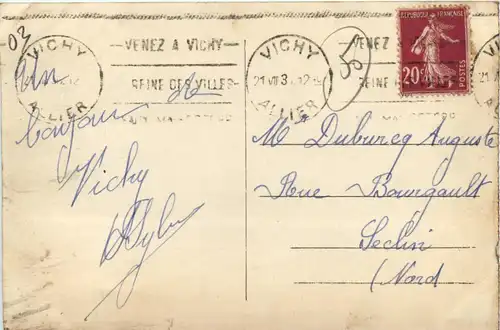 03
VICHY
ALLIER
VENEZ A VICHY
REINE DES VILLES
VICHY
21 VII 3
ALLIER
5
VENEZ
REPUBLIQUE FRANÇAISE
20c
POSTES
Un
bonjour de
Vichy
Mr Duburcq Auguste
Rue Bourgault
Seclin
(Nord